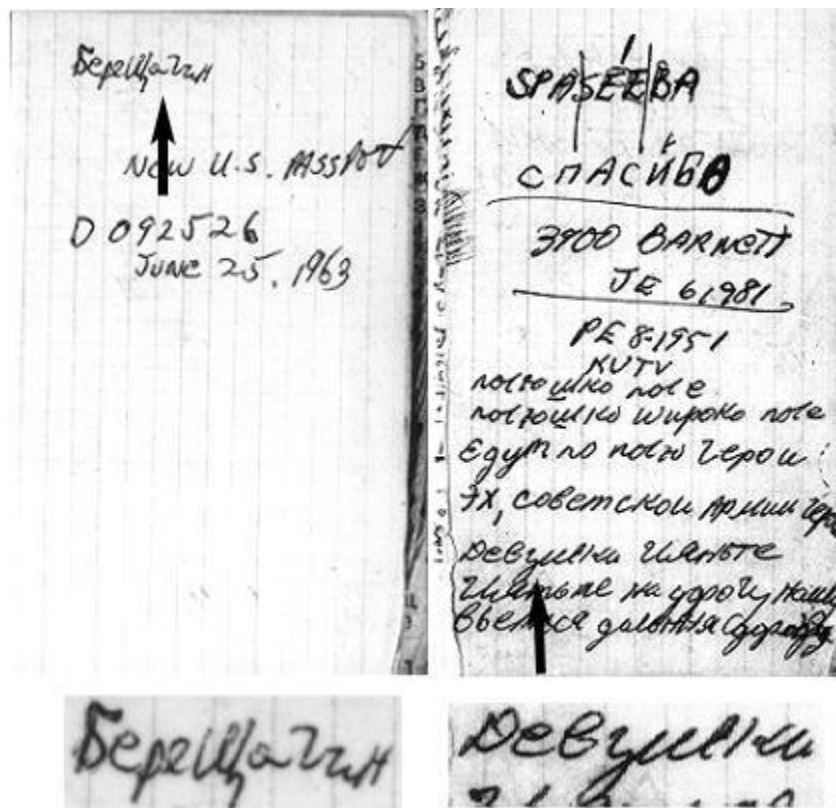 Берещагин
NEW U.S. PASSPORT
D 092526
JUNE 25, 1963
SPASEEBA
СПАСИБА
3900 BARNETT
JE 61981
PE 8-1951
KUTV
полюшко поле
полюшко широко поле
Едут по полю герои
Эх, советской Армии геро
Девушки гляньте
Гляньте на дорогу наш
Вьется дальняя
Берещагин
Девушки